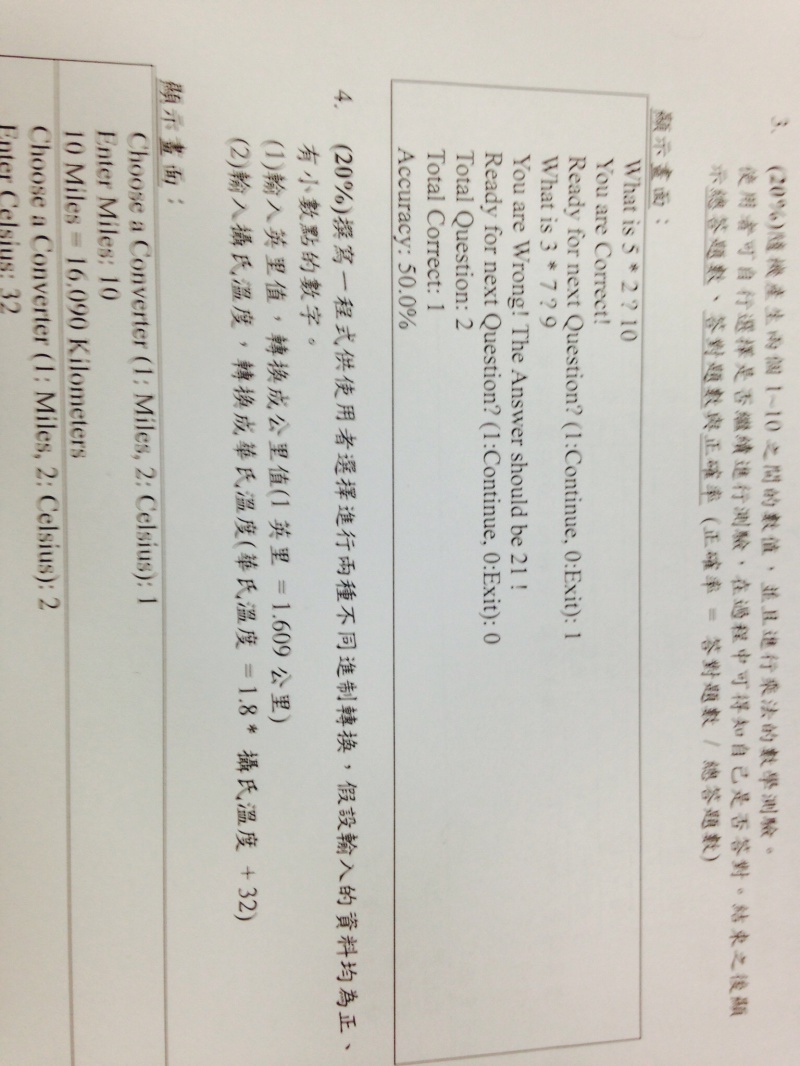 3. (20%)隨機產生兩個 1~10 之間的數值，並且進行乘法的數學測驗。
使用者可自行選擇是否繼續進行測驗，在過程中可得知自己是否答對。結束之後顯
示總答題數、答對題數與正確率 (正確率 = 答對題數 / 總答題數)
顯示畫面：
What is 5 * 2 ? 10
You are Correct!
Ready for next Question? (1:Continue, 0:Exit): 1
What is 3 * 7 ? 9
You are Wrong! The Answer should be 21 !
Ready for next Question? (1:Continue, 0:Exit): 0
Total Question: 2
Total Correct: 1
Accuracy: 50.0%
4. (20%)撰寫一程式供使用者選擇進行兩種不同進制轉換，假設輸入的資料均為正、
有小數點的數字。
(1)輸入英里值，轉換成公里值(1 英里 = 1.609 公里)
(2)輸入攝氏溫度，轉換成華氏溫度(華氏溫度 = 1.8 * 攝氏溫度 + 32)
顯示畫面：
Choose a Converter (1: Miles, 2: Celsius): 1
Enter Miles: 10
10 Miles = 16.090 Kilometers
Choose a Converter (1: Miles, 2: Celsius): 2
Enter Celsius: 32